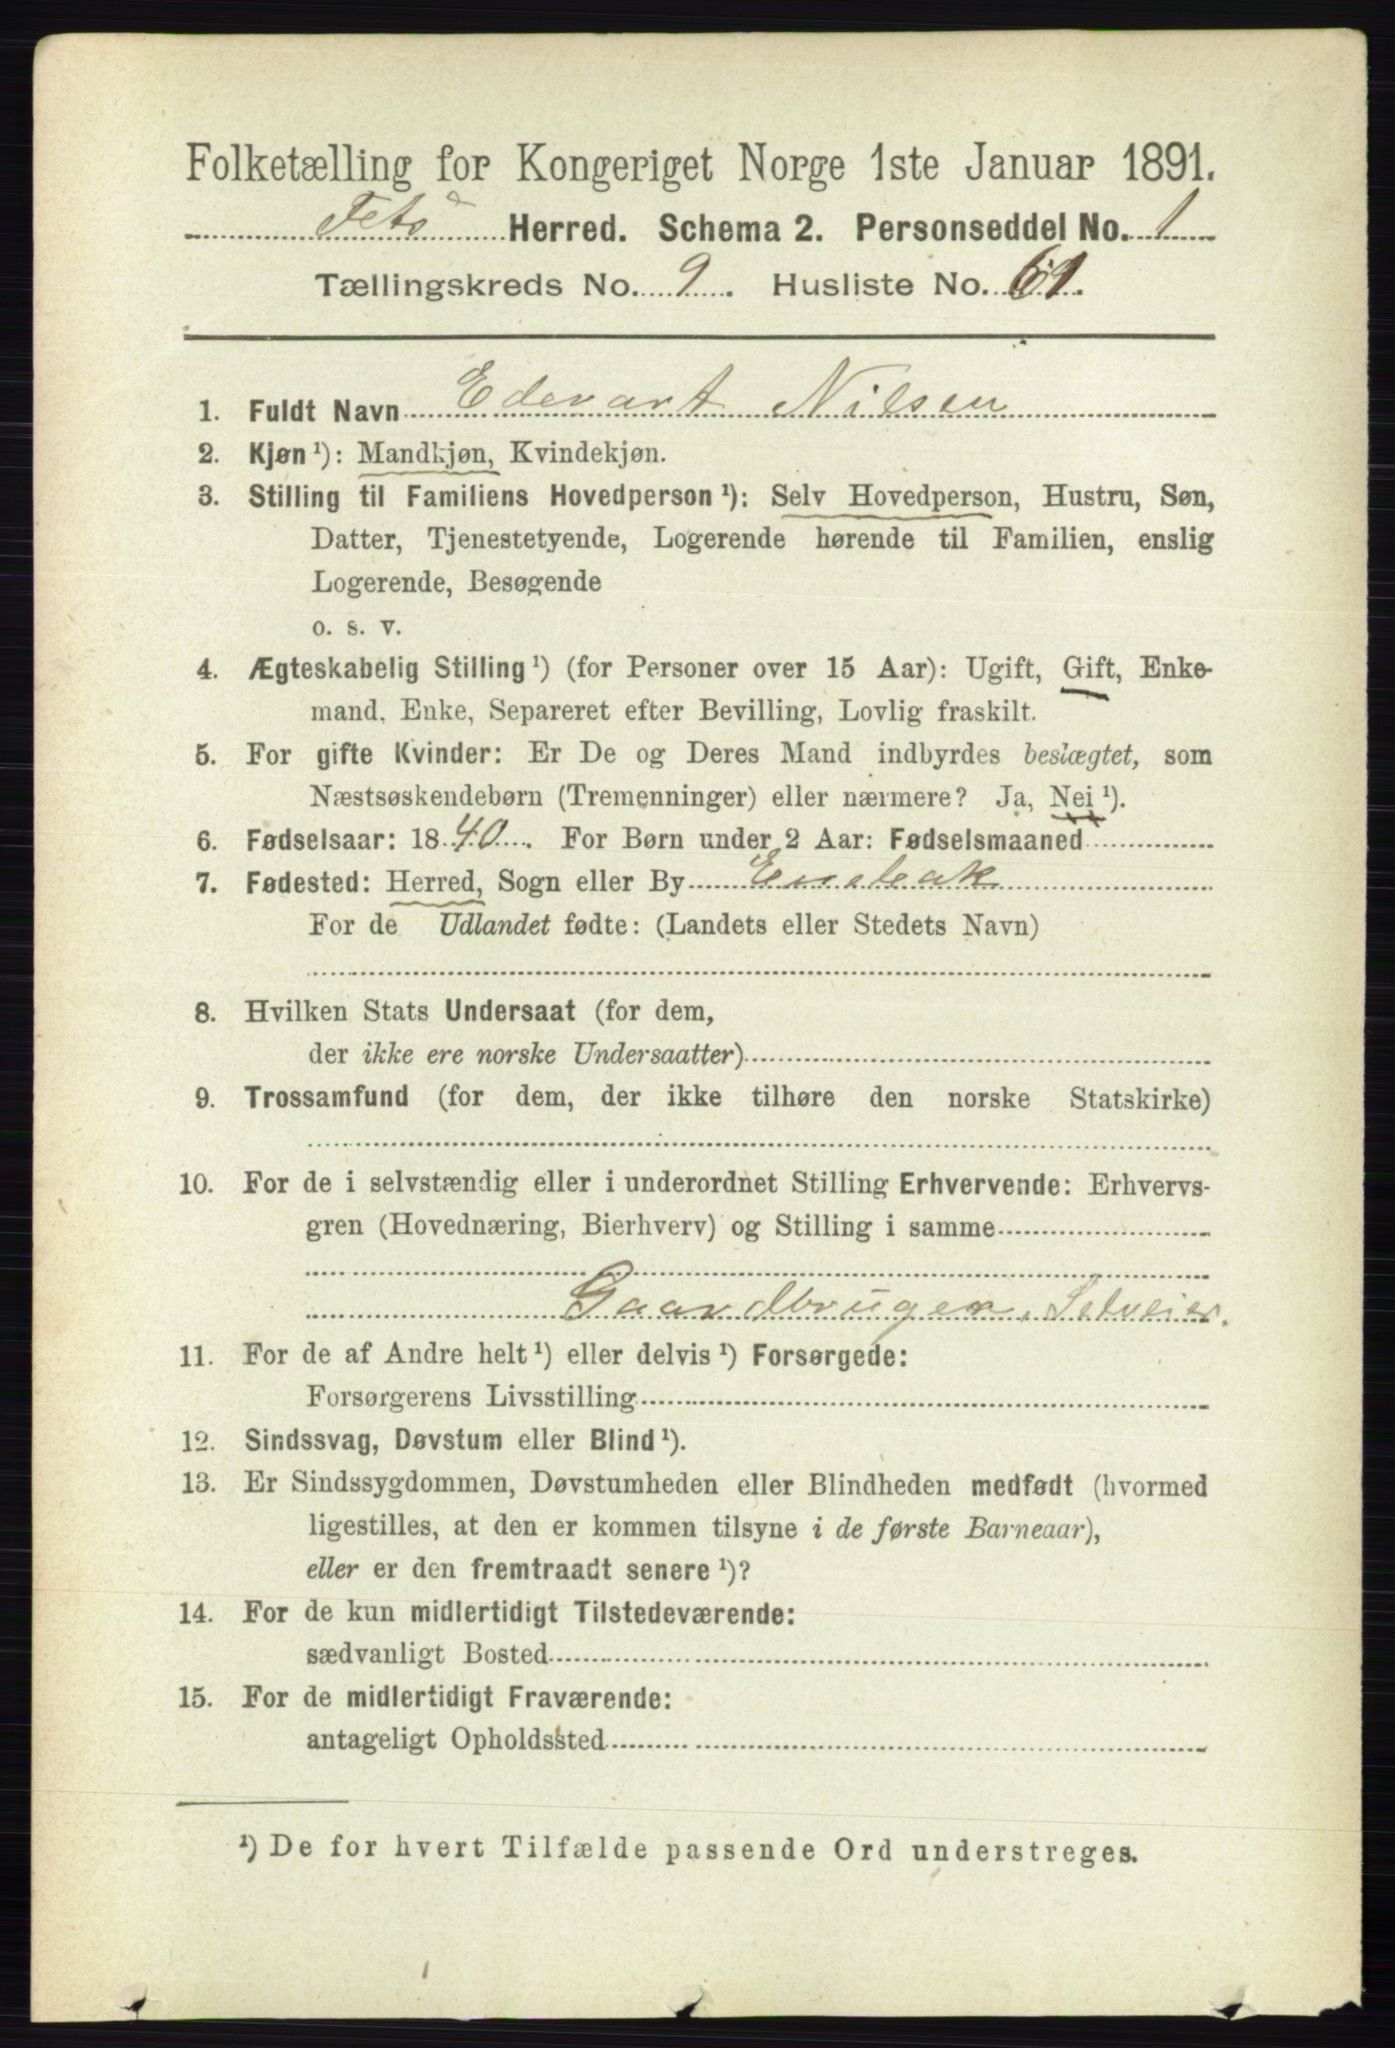 Folketælling for Kongeriget Norge 1ste Januar 1891.
Fets Herred. Schema 2. Personseddel No. 1
Tællingskreds No. 9. Husliste No. 61.
1. Fuldt Navn Edevart Nilsen
2. Kjøn ¹): Mandkjøn, Kvindekjøn.
3. Stilling til Familiens Hovedperson ¹): Selv Hovedperson, Hustru, Søn,
Datter, Tjenestetyende, Logerende hørende til Familien, enslig
Logerende, Besøgende
o. s. v.
4. Ægteskabelig Stilling ¹) (for Personer over 15 Aar): Ugift, Gift, Enke-
mand, Enke, Separeret efter Bevilling, Lovlig fraskilt.
5. For gifte Kvinder: Er De og Deres Mand indbyrdes beslægtet, som
Næstsøskendebørn (Tremenninger) eller nærmere? Ja, Nei ¹).
6. Fødselsaar: 1840. For Børn under 2 Aar: Fødselsmaaned
7. Fødested: Herred, Sogn eller By Enebak
For de Udlandet fødte: (Landets eller Stedets Navn)
8. Hvilken Stats Undersaat (for dem,
der ikke ere norske Undersaatter)
9. Trossamfund (for dem, der ikke tilhøre den norske Statskirke)
10. For de i selvstændig eller i underordnet Stilling Erhvervende: Erhvervs-
gren (Hovednæring, Bierhverv) og Stilling i samme
Gaardbruger, Selveier.
11. For de af Andre helt ¹) eller delvis ¹) Forsørgede:
Forsørgerens Livsstilling
12. Sindssvag, Døvstum eller Blind ¹).
13. Er Sindssygdommen, Døvstumheden eller Blindheden medfødt (hvormed
ligestilles, at den er kommen tilsyne i de første Barneaar),
eller er den fremtraadt senere ¹)?
14. For de kun midlertidigt Tilstedeværende:
sædvanligt Bosted
15. For de midlertidigt Fraværende:
antageligt Opholdssted
¹) De for hvert Tilfælde passende Ord understreges.